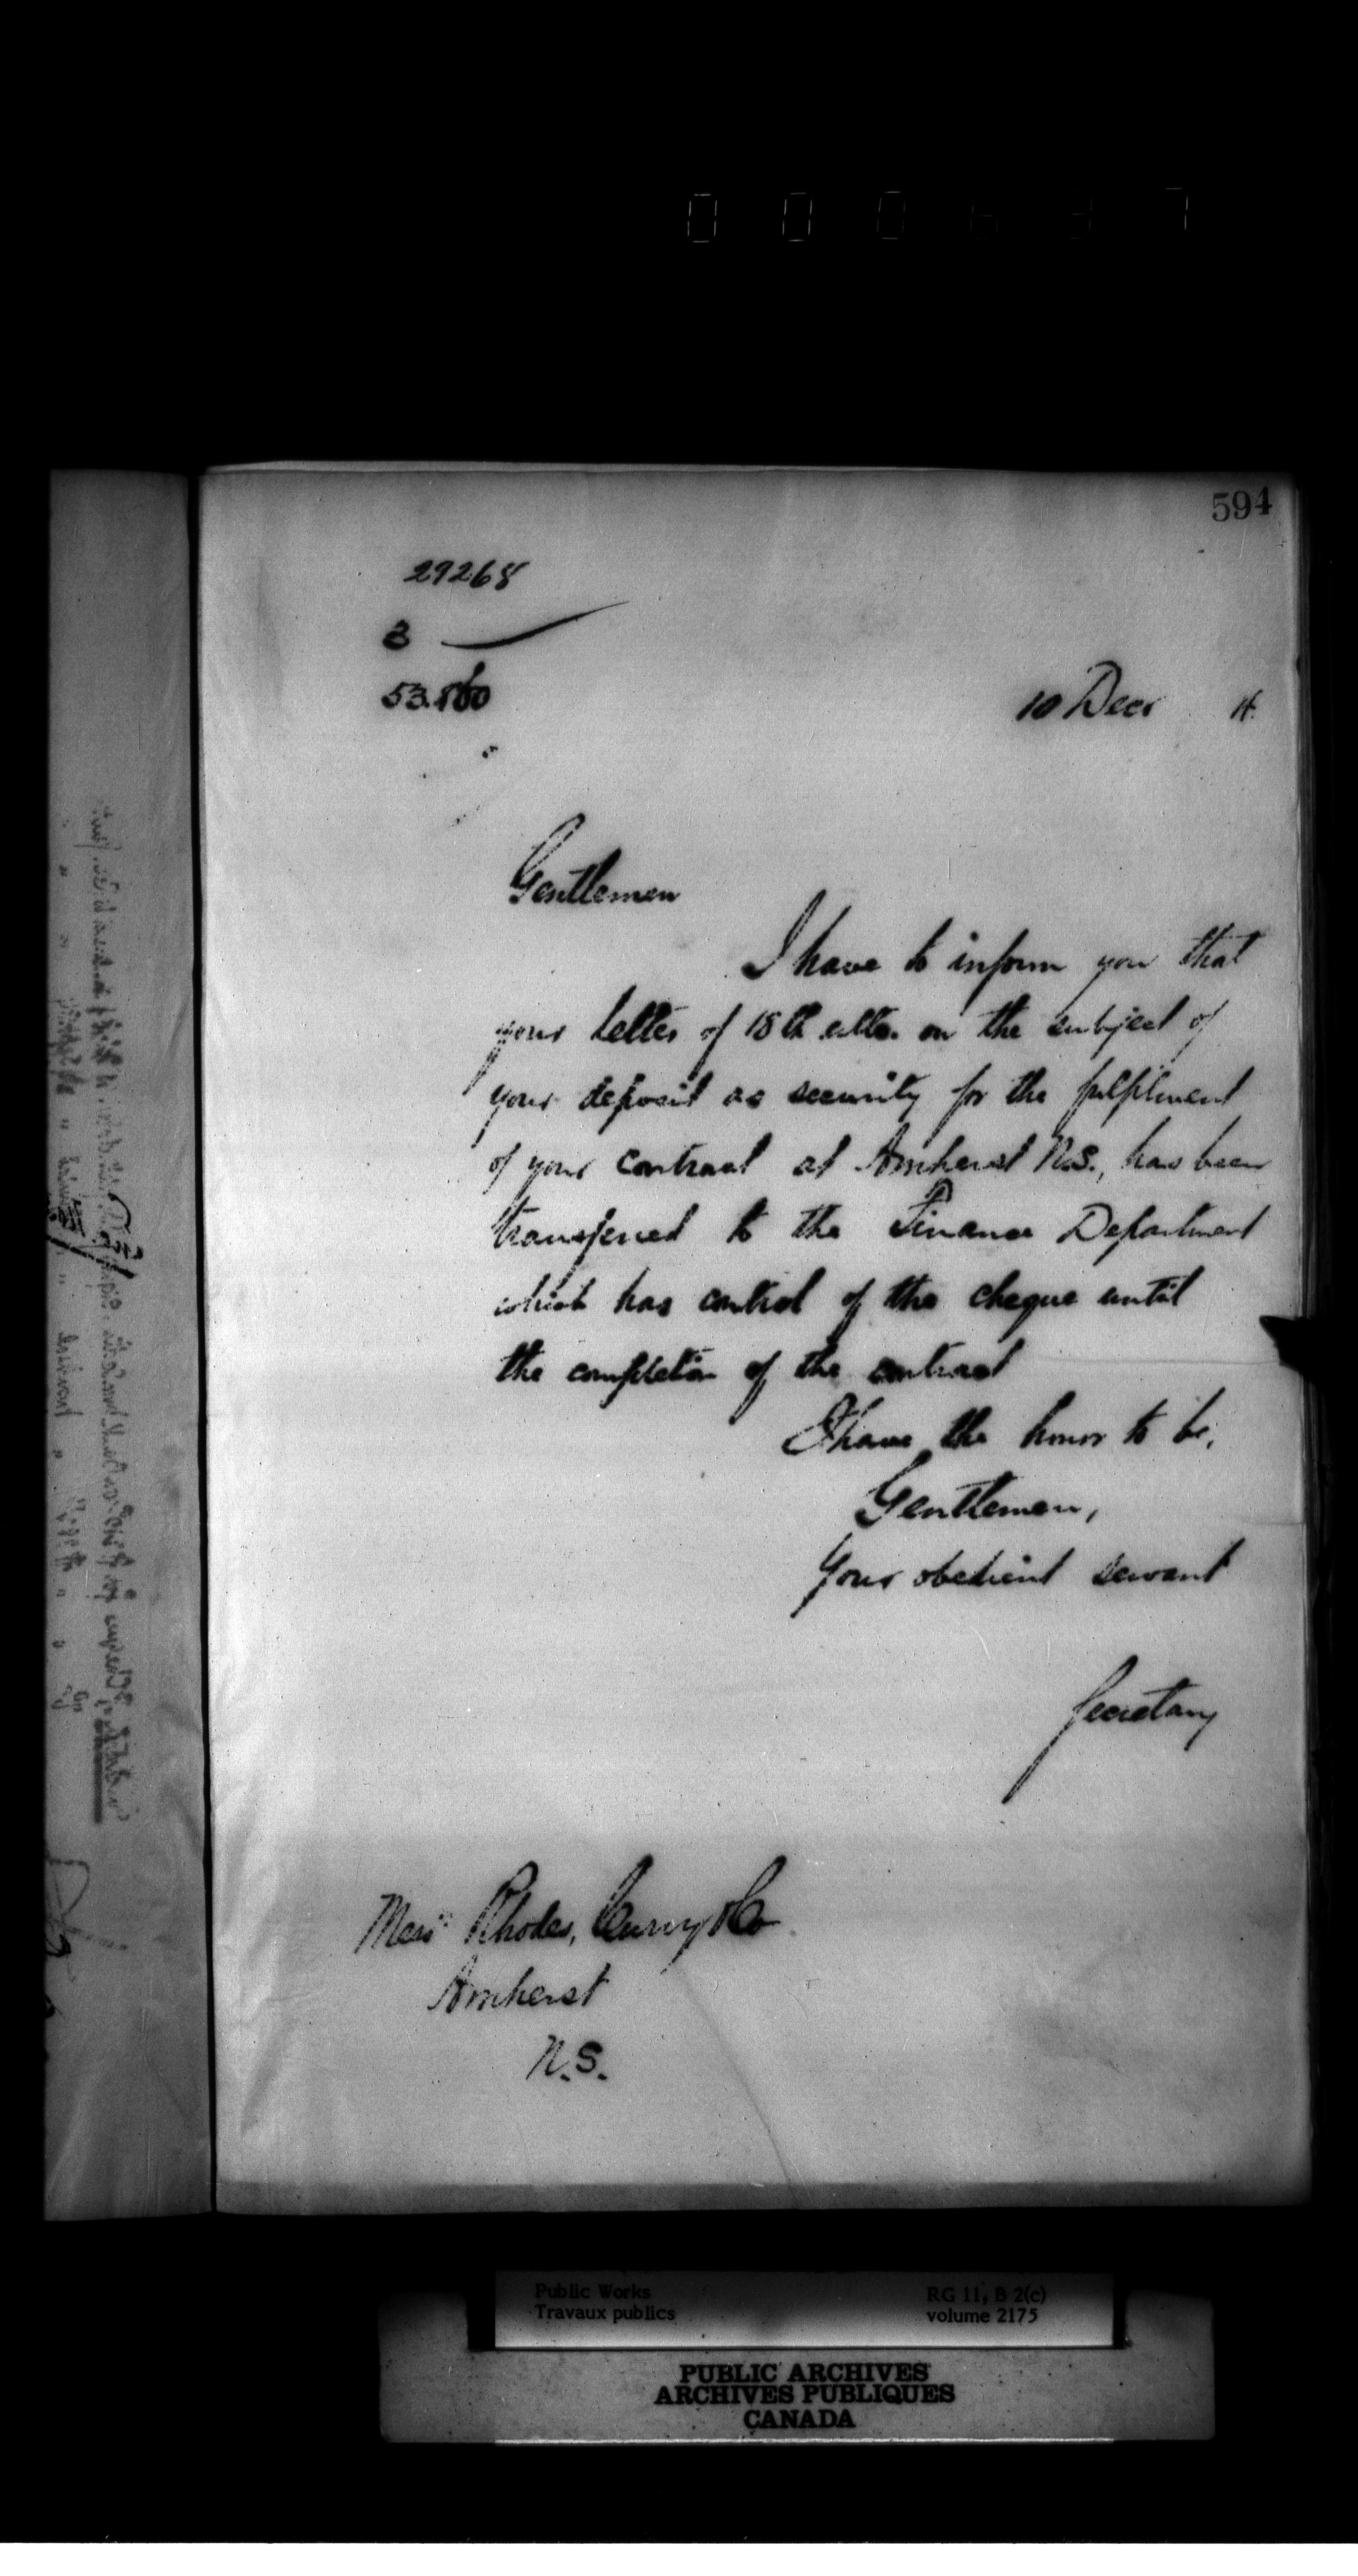 594
29268
3
53.860
10 Decr
Gentlemen
I have to inform you that
your letter of 18th ulto. on the subject of
your deposit as security for the fulfilment
of your contract at Amherst N.S., has been
transferred to the Finance Department
which has control of the cheque until
the completion of the contract
I have the honor to be,
Gentlemen,
Your obedient servant
Secretary
Messrs Rhodes, Curry & Co
Amherst
N.S.
Public Works
Travaux publics
RG 11, B 2(c)
volume 2175
PUBLIC ARCHIVES
ARCHIVES PUBLIQUES
CANADA